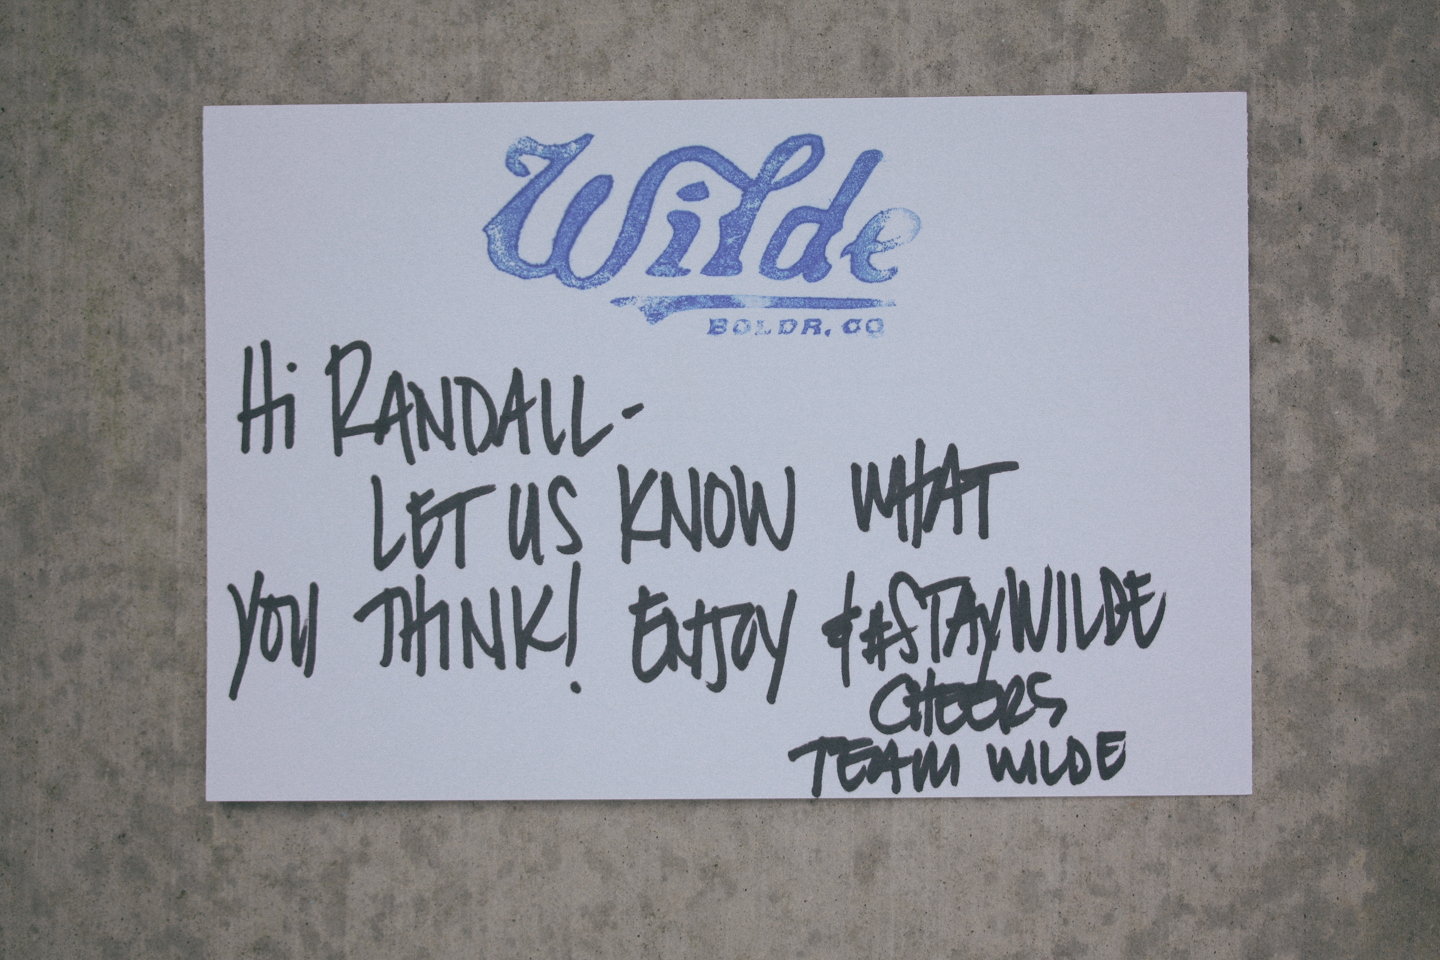 Wilde
BOLDR, CO
Hi RANDALL-
LET US KNOW WHAT
YOU THINK! ENJOY & #STAYWILDE
CHEERS
TEAM WILDE